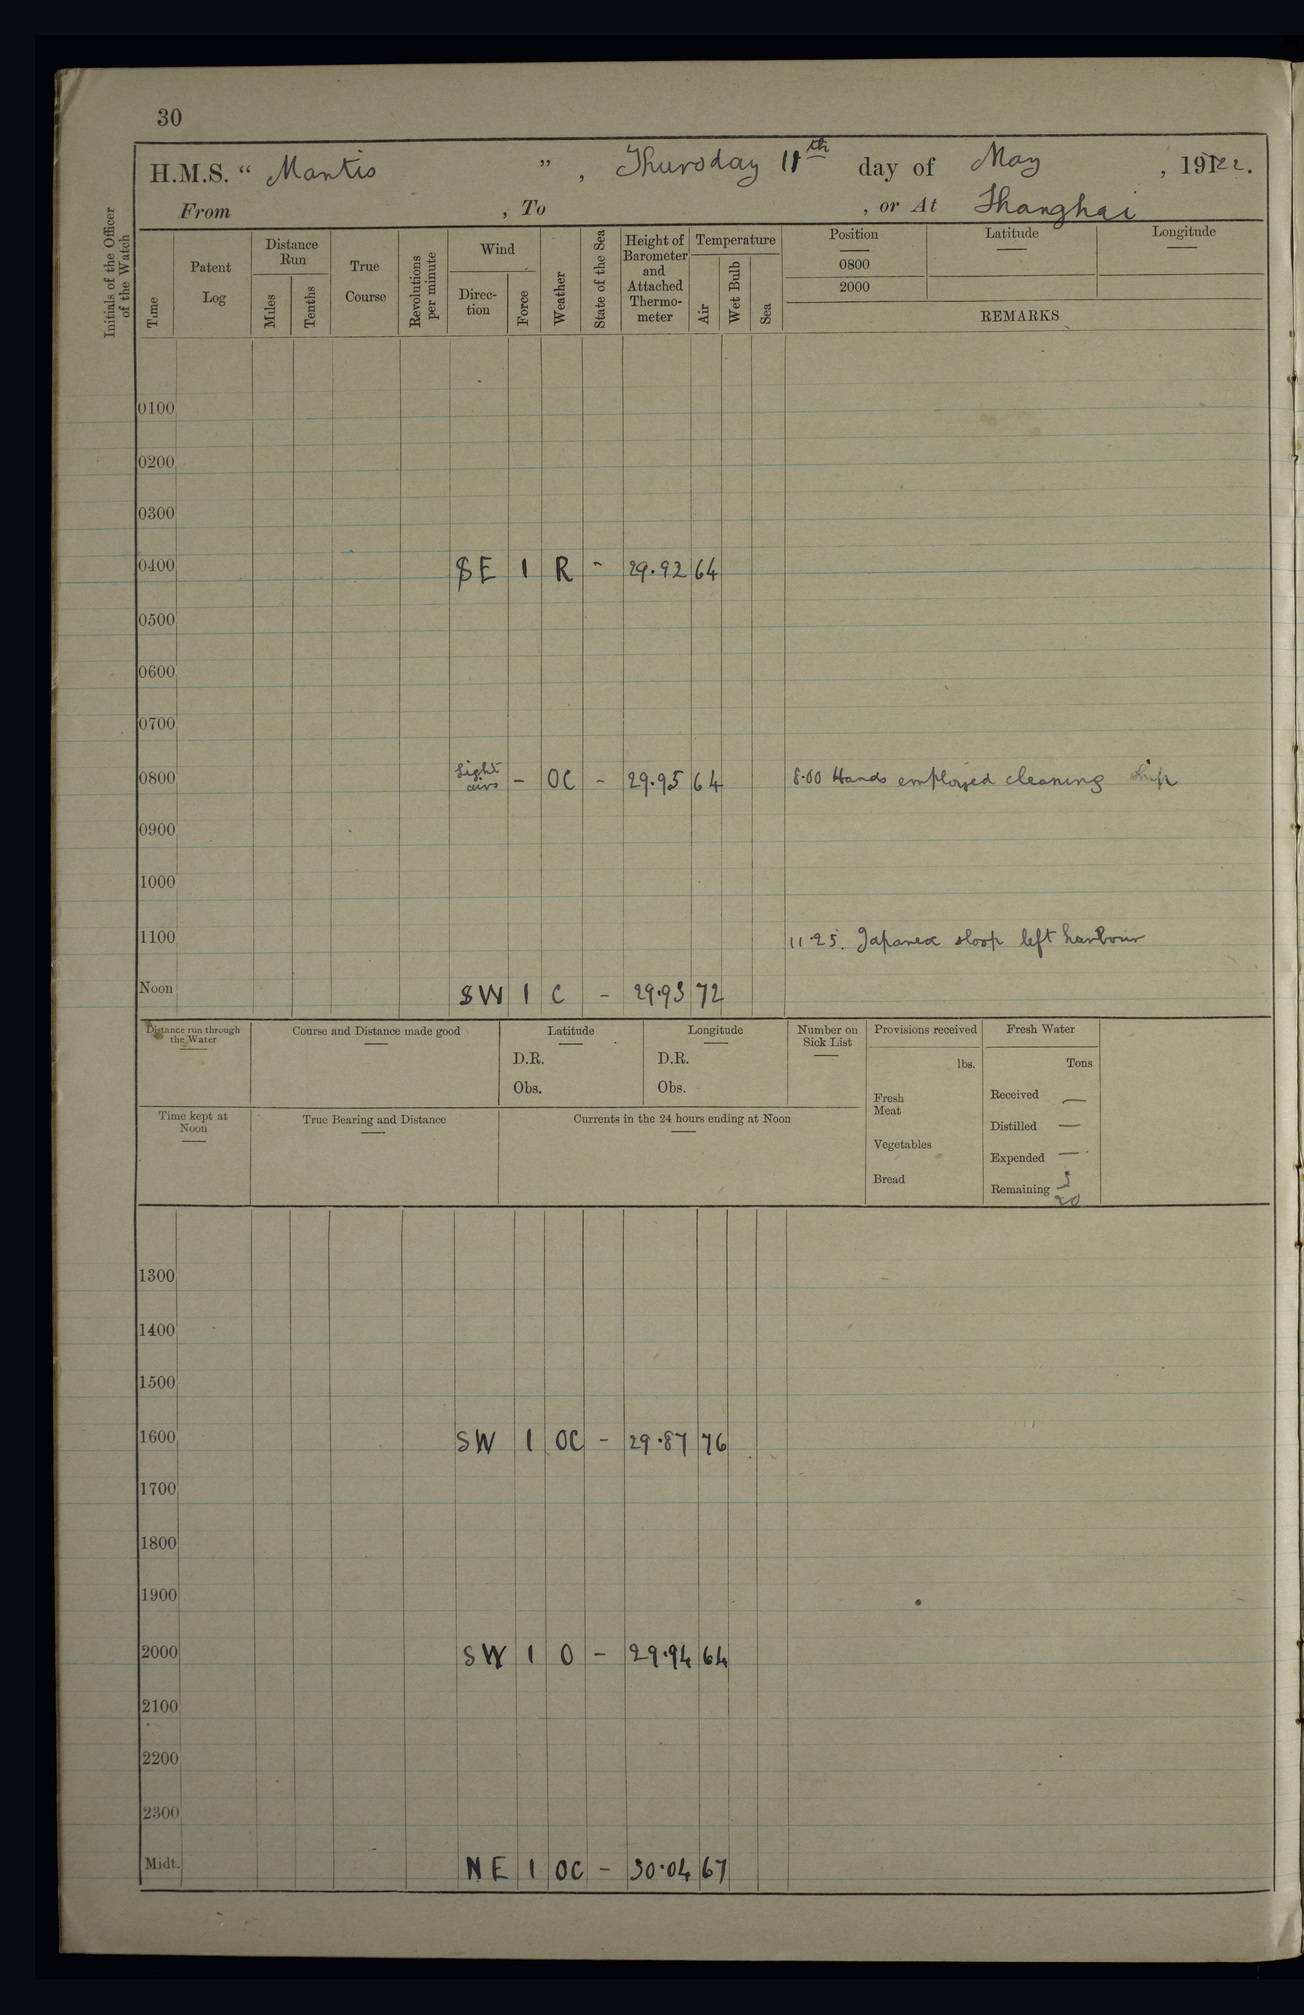 30
H.M.S. “ Mantis ” , Thursday 11th day of May , 1922.
From , To , or At Shanghai
Initials of the Officer of the Watch
Time
Patent Log
Distance Run
Miles
Tenths
True Course
Revolutions per minute
Wind
Direc-tion
Force
Weather
State of the Sea
Height of Barometer and Attached Thermo-meter
Temperature
Air
Wet Bulb
Sea
Position Latitude Longitude
0800
2000
REMARKS
0100
0200
0300
0400 SE 1 R - 29.92 64
0500
0600
0700
0800 Light airs - OC - 29.95 64 8.00 Hands employed cleaning ship
0900
1000
1100 11.25. Japanese sloop left harbour
Noon SW 1 C - 29.93 72
Distance run through the Water
Course and Distance made good
Latitude
D.R.
Obs.
Longitude
D.R.
Obs.
Number on Sick List
Provisions received
lbs.
Fresh Meat
Vegetables
Bread
Fresh Water
Tons
Received —
Distilled —
Expended —
Remaining
Time kept at Noon
True Bearing and Distance
Currents in the 24 hours ending at Noon
1300
1400
1500
1600 SW 1 OC - 29.87 76
1700
1800
1900
2000 SW 1 O - 29.94 64
2100
2200
2300
Midt. NE 1 OC - 30.04 67